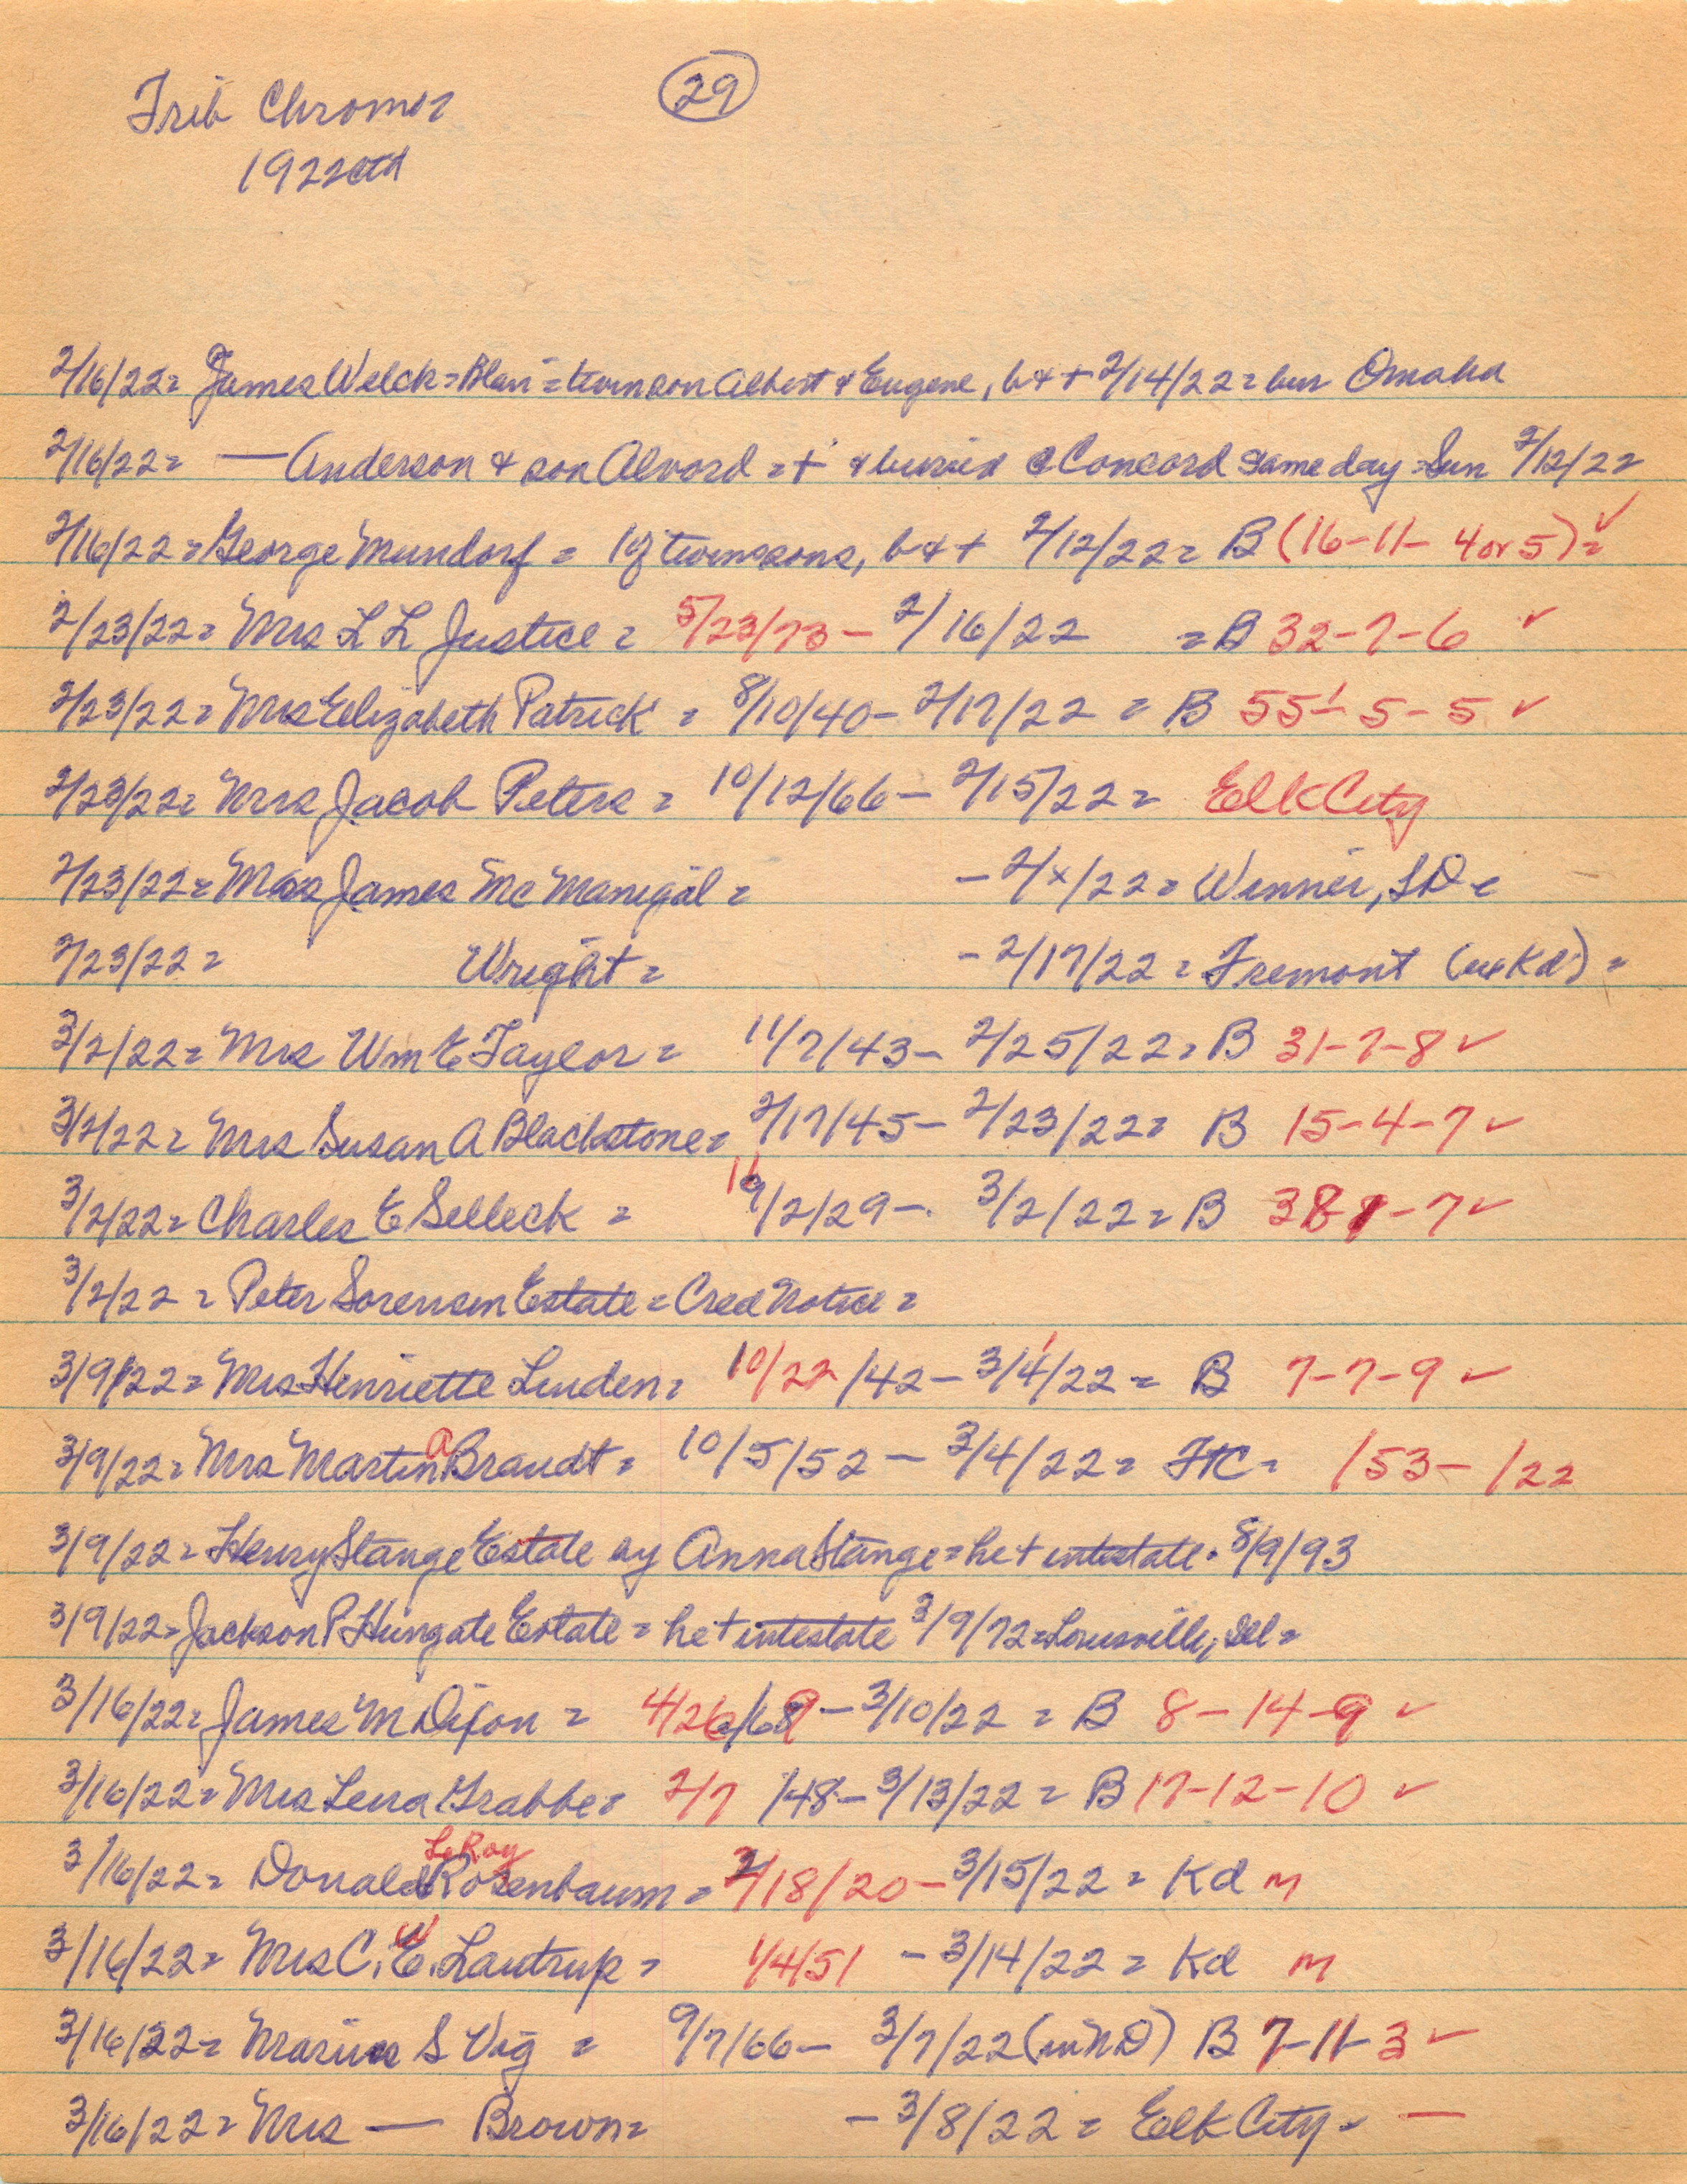 Trib Chromoz (29)
1922ctd
2/16/22= James Welck=Blair=twin son Albert & Eugene, b&+ 2/14/22=bur Omaha
2/16/22= — Anderson & son Alvord=+ & buried @ Concord same day=Sun 2/12/22
2/16/22=George Mundorf= 1 of twin sons, b&+ 2/12/22= B (16-11- 4 or 5)= ✓
2/23/22= Mrs L L Justice= 5/23/73- 2/16/22 =B 32-7-6 ✓
2/23/22= Mrs Elizabeth Patrick = 8/10/40- 2/17/22 = B 55- 5-5 ✓
2/23/22= Mrs Jacob Peters = 10/12/66- 2/15/22= Elk City
2/23/22= Mrs James McManigal= -2/x/22= Winner, SD=
2/23/22= Wright= -2/17/22= Fremont (ex Kd)=
3/2/22= Mrs Wm E Taylor= 11/7/43- 2/25/22= B 31-7-8 ✓
3/2/22= Mrs Susan A Blackstone= 2/17/45- 2/23/22= B 15-4-7 ✓
3/2/22= Charles E Selleck = /2/29- 3/2/22= B -7 ✓
3/2/22= Peter Sorensen Estate=Cred Notice=
3/9/22= Mrs Henriette Linden= 10/22/42-3/4/22= B 7-7-9 ✓
3/9/22= Mrs Martin A Brandt= 10/5/52- 3/4/22= FtC= /53- /22
3/9/22= Henry Stange Estate by Anna Stange=he+ intestate= 8/9/93
3/9/22=Jackson P Hungate Estate=he+ intestate 3/9/72=Louisville, Ill=
3/16/22= James M Dixon = 4/26/69-3/10/22 = B 8-14-9 ✓
3/16/22= Mrs Lena Grabbe= 2/7 /48-3/13/22= B 17-12-10 ✓
3/16/22= Donald LeRoy Rosenbaum= 2/18/20-3/15/22= Kd m
3/16/22= Mrs C. W Lautrup= 1/4/51 -3/14/22= Kd m
3/16/22= Marius S Vig = 9/7/66- 3/7/22(in ND) B 7-11-3 ✓
3/16/22= Mrs — Brown= -3/8/22= Elk City= —